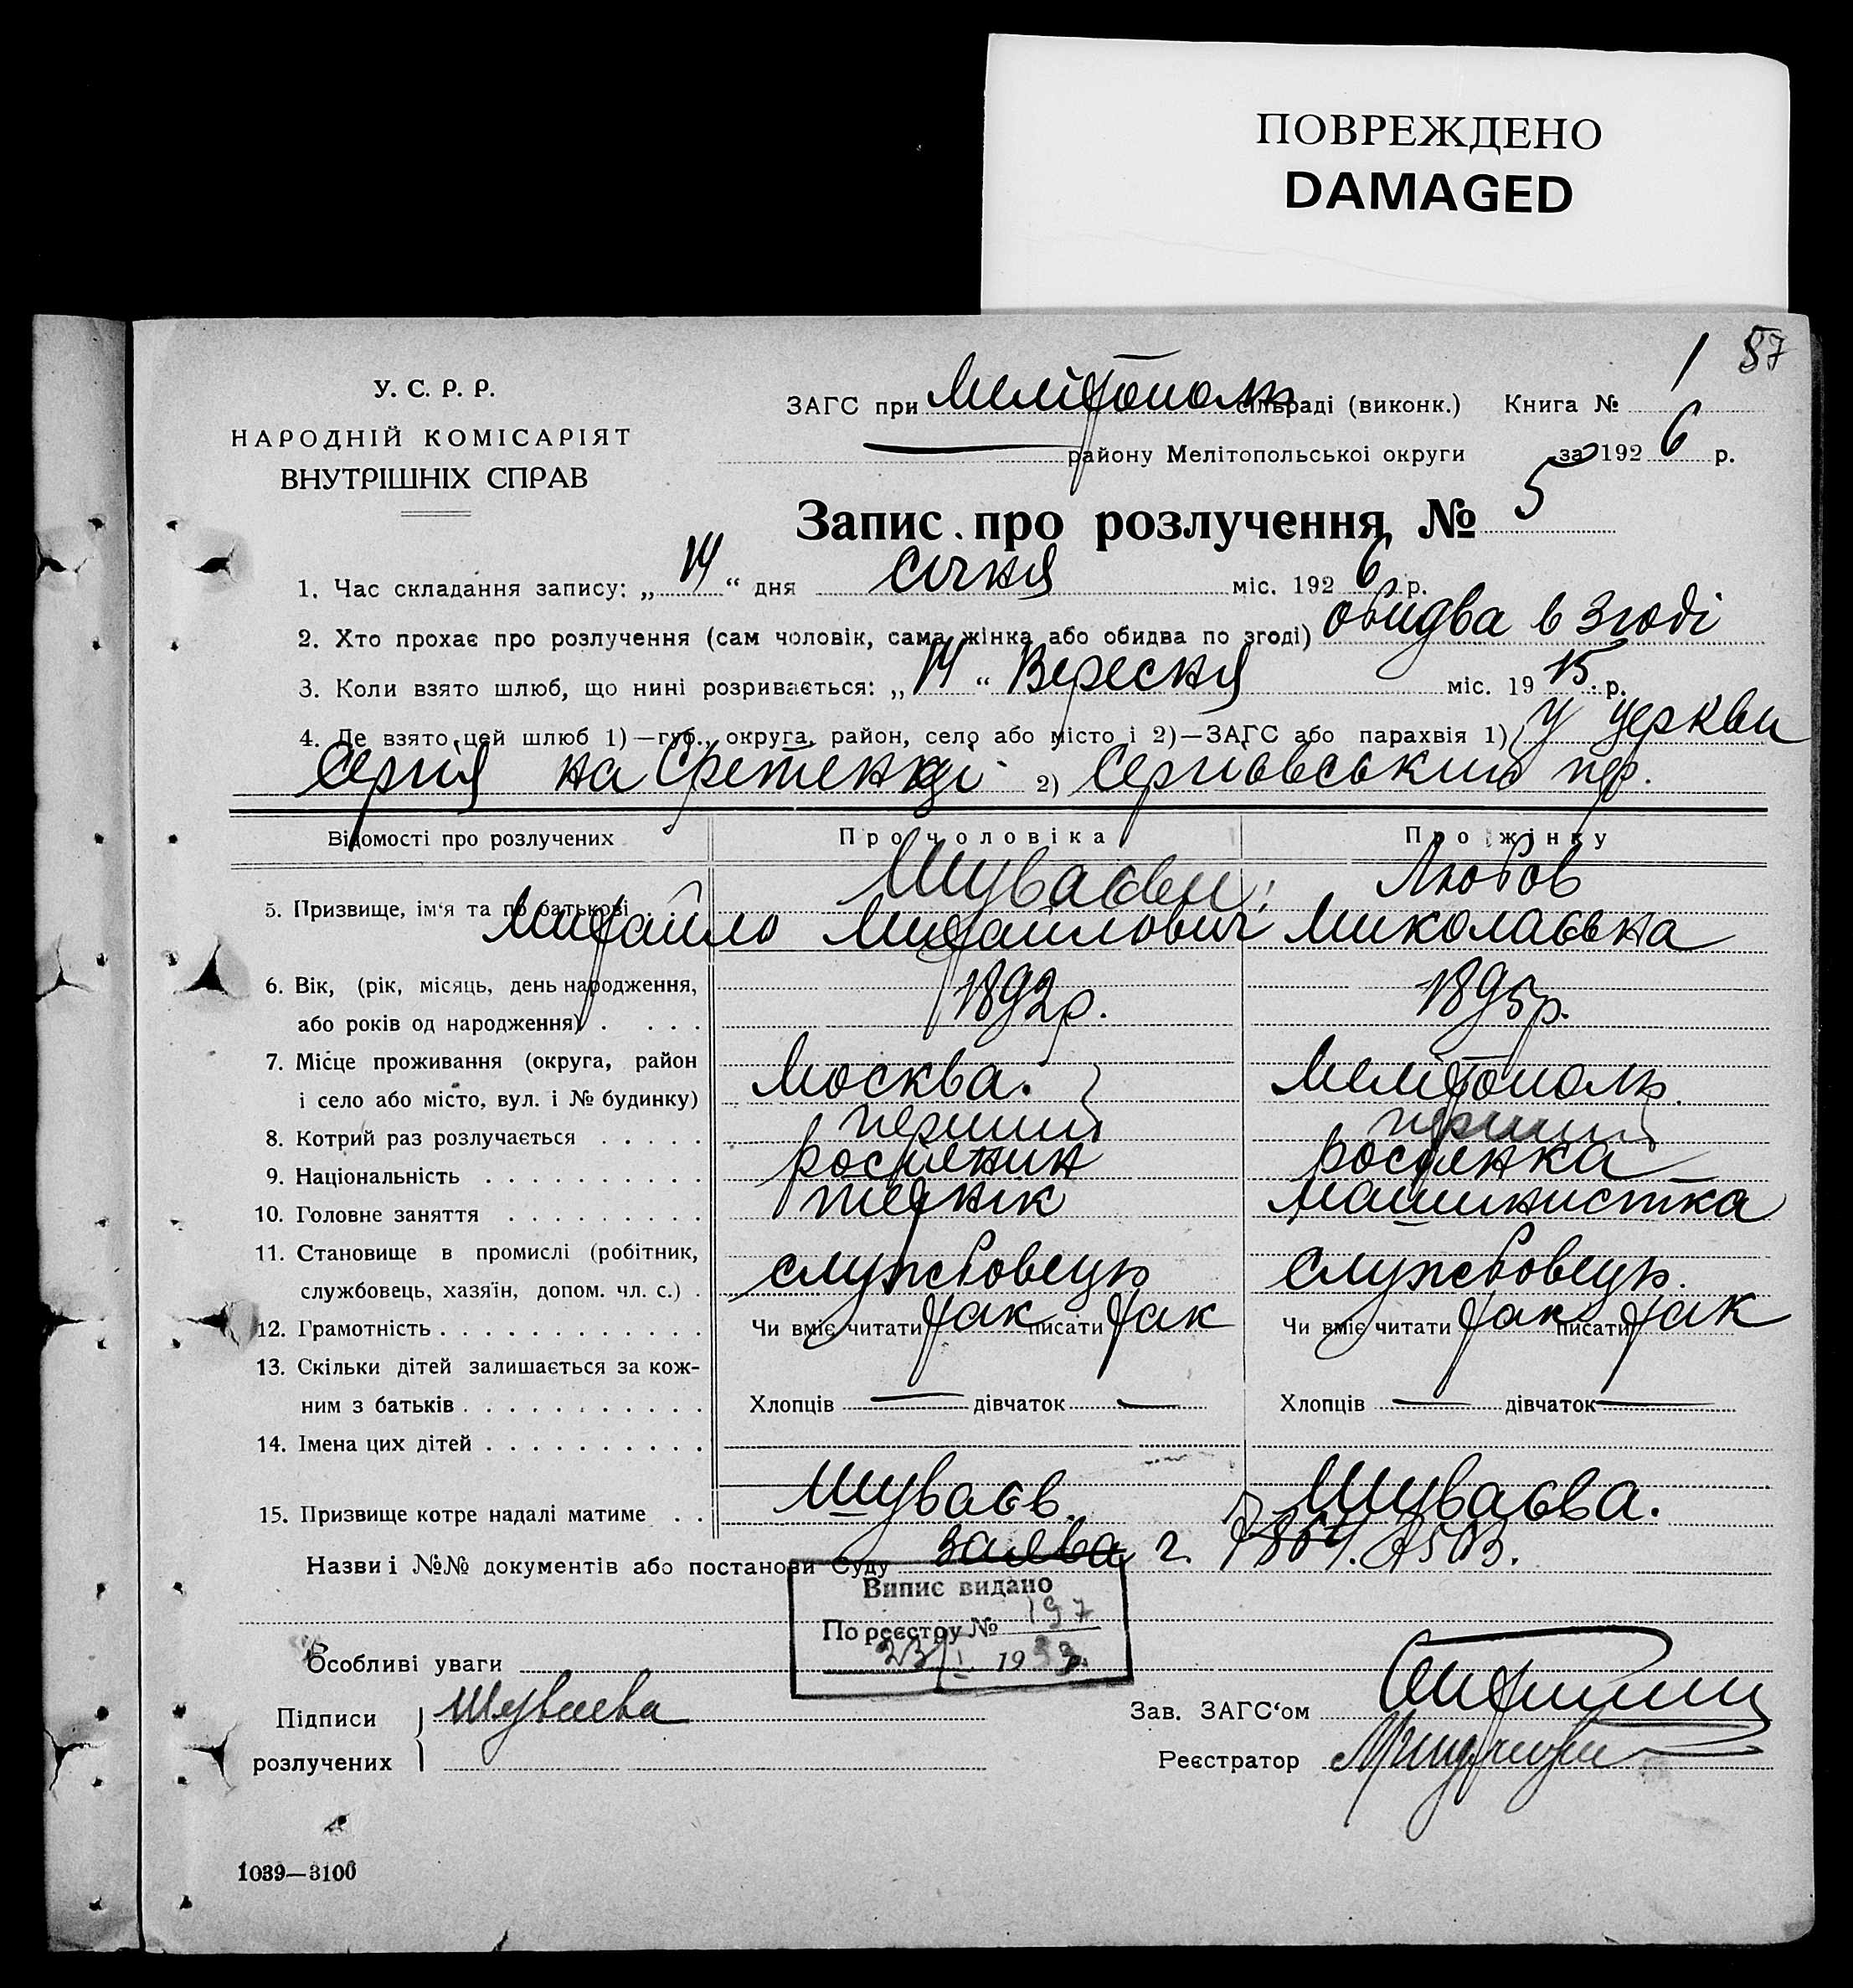 ПОВРЕЖДЕНО
DAMAGED
1 57
У. С. Р. Р.
НАРОДНІЙ КОМІСАРІЯТ
ВНУТРІШНІХ СПРАВ
ЗАГС при Мелітополь сільраді (виконк.) Книга №
району Мелітопольської округи за 1926 р.
Запис про розлучення № 5
1. Час складання запису: „14“ дня січня міс. 1926 р.
2. Хто прохає про розлучення (сам чоловік, сама жінка або обидва по згоді) обидва в згоді
3. Коли взято шлюб, що нині розривається: „14“ Вересня міс. 1915 р.
4. Де взято цей шлюб 1)—губ., округа, район, село або місто і 2)—ЗАГС або парахвія 1) У церкви
Сергія на Сретенкці 2) Сергіевський пер.
Відомості про розлучених Про чоловіка Про жінку
Шуваєви; Любов
5. Призвище, ім‘я та по батькові
Михайло Михайлович Миколаєвна
6. Вік, (рік, місяць, день народження, 1892р. 1895р.
або років од народження)
7. Місце проживання (округа, район Москва. Мелітополь.
і село або місто, вул. і № будинку)
8. Котрий раз розлучається перший перший
9. Національність росіянин росіянка
10. Головне заняття технік машинистка
11. Становище в промислі (робітник,
службовець, хазяїн, допом. чл. с.) службовець службовець.
12. Грамотність Чи вміє читати так писати так Чи вміє читати так писати так
13. Скільки дітей залишається за кож-
ним з батьків Хлопців — дівчаток — Хлопців — дівчаток —
14. Імена цих дітей
15. Призвище котре надалі матиме Шуваєв. Шуваєва.
Назви і №№ документів або постанови Суду заява
Випис видано
По реєстру № 197
23/I 1933р.
Особливі уваги
Підписи Шуваева
розлучених
Зав. ЗАГС‘ом
Реєстратор
1039—3100